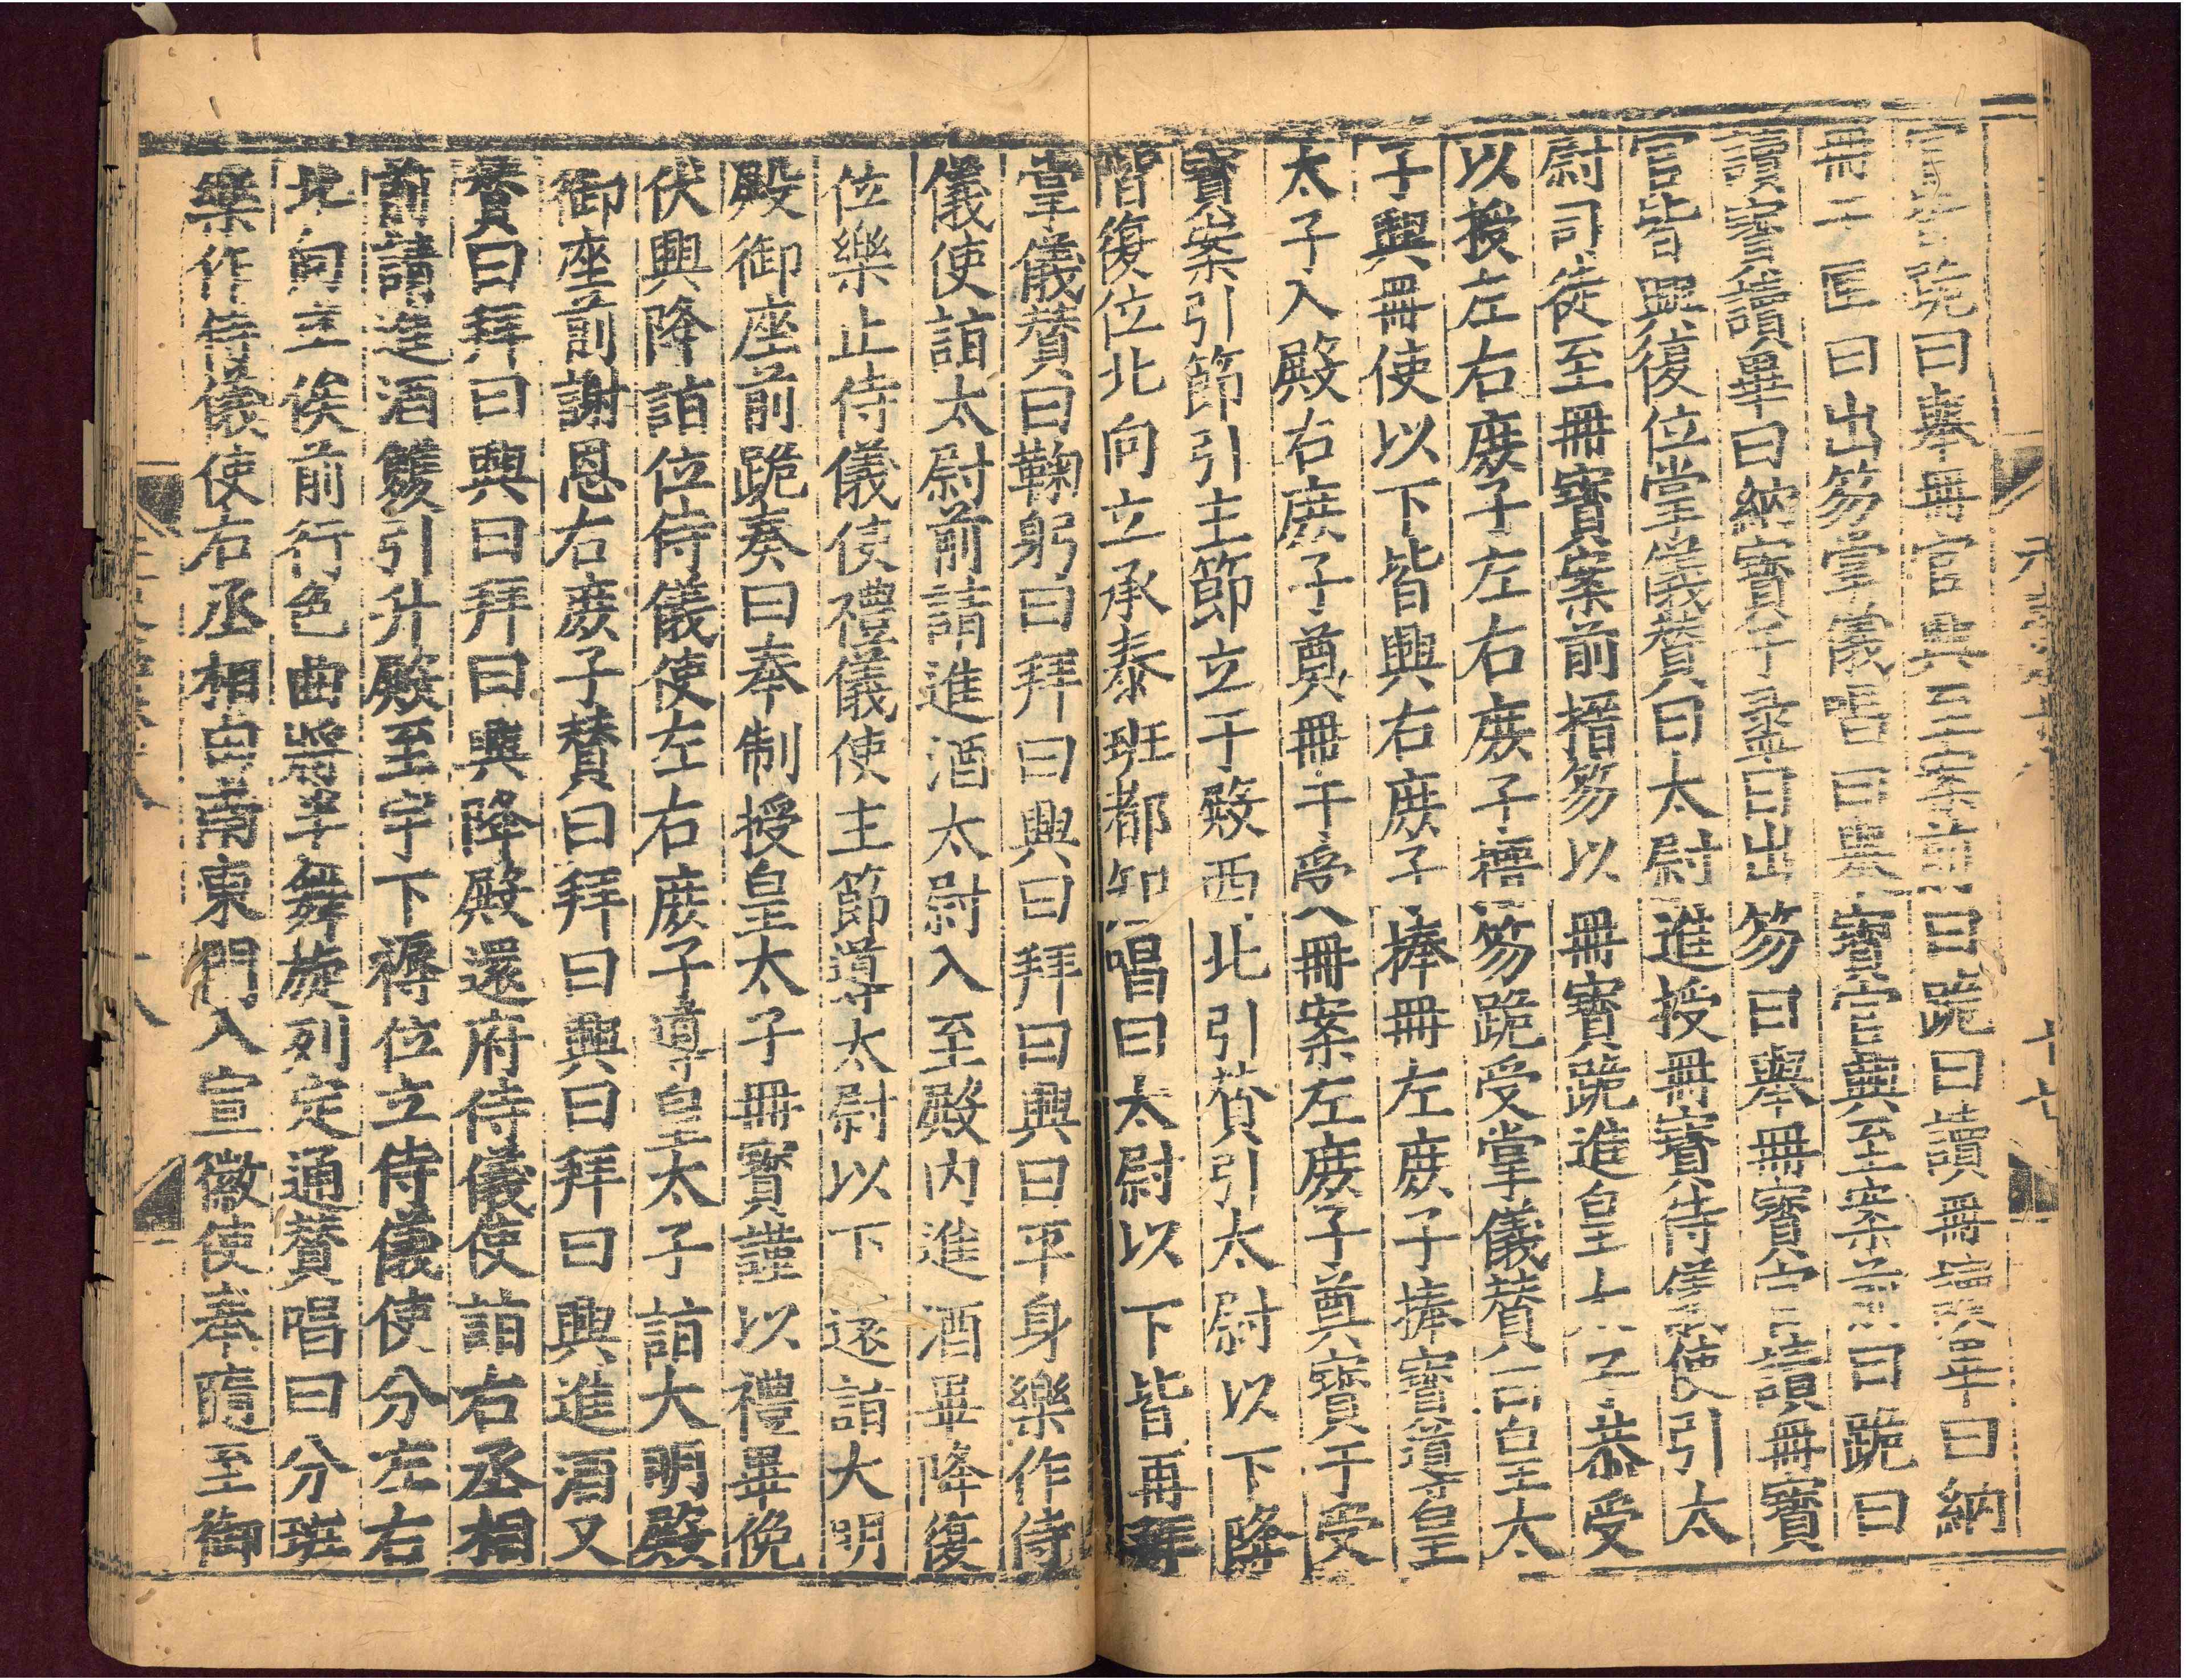 官皆跪曰舉冊官興至案前曰跪曰讀冊讀冊畢曰納
冊于匣曰出笏掌儀唱曰舉寶官興至案前曰跪曰
讀寶讀畢曰納寶于盝曰出笏曰舉冊寶官讀冊寶
官皆興復位掌儀贊曰太尉進授冊寶侍儀使引太
尉司徒至冊寶案前搢笏以冊寶跪進皇太子恭受
以授左右庶子左右庶子搢笏跪受掌儀贊曰皇太
子興冊使以下皆興右庶子捧冊左庶子捧寶導皇
太子入殿右庶子奠冊于受冊案左庶子奠寶于受
寶案引節引主節立于殿西北引贊引太尉以下降
階復位北向立承奉班都知唱曰太尉以下皆再拜
掌儀贊曰鞠躬曰拜曰興曰拜曰興曰平身樂作侍
儀使詣太尉前請進酒太尉入至殿內進酒畢降復
位樂止侍儀使禮儀使主節導太尉以下還詣大明
殿御座前跪奏曰奉制授皇太子冊寶謹以禮畢俛
伏興降詣位侍儀使左右庶子導皇太子詣大明殿
御座前謝恩右庶子贊曰拜曰興曰拜曰興進酒又
贊曰拜曰興曰拜曰興降殿還府侍儀使詣右丞相
前請進酒雙引升殿至宇下褥位立侍儀使分左右
北向立俟前行色曲將半舞旋列定通贊唱曰分班
樂作侍儀使右丞相由南東門入宣徽使奉隨至御
十七